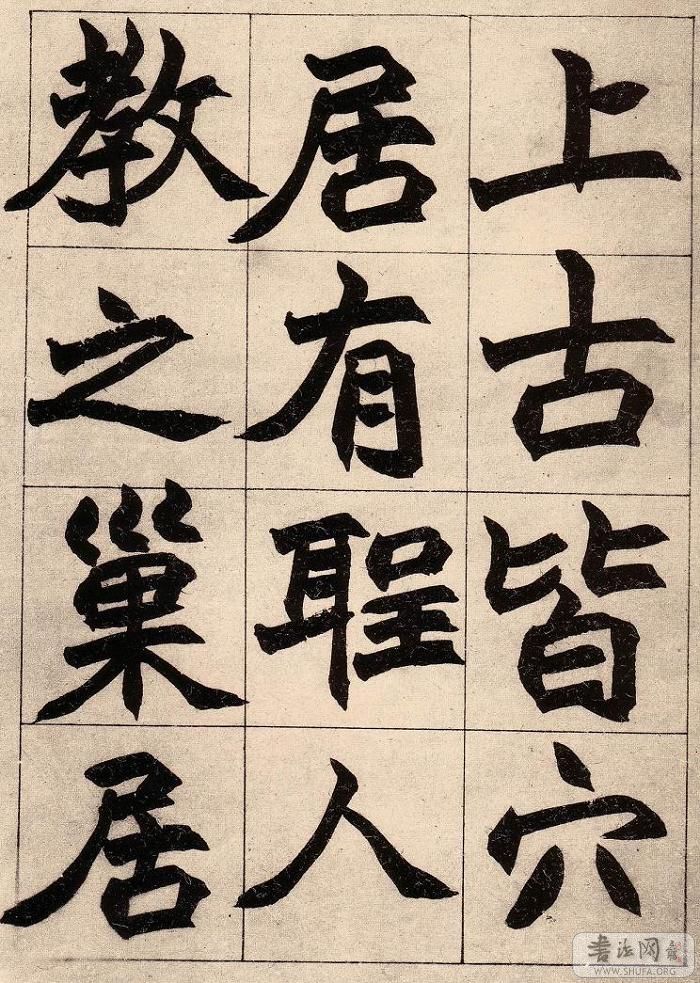 上古皆穴
居有聖人
教之巢居
書法网
WWW.SHUFA.ORG